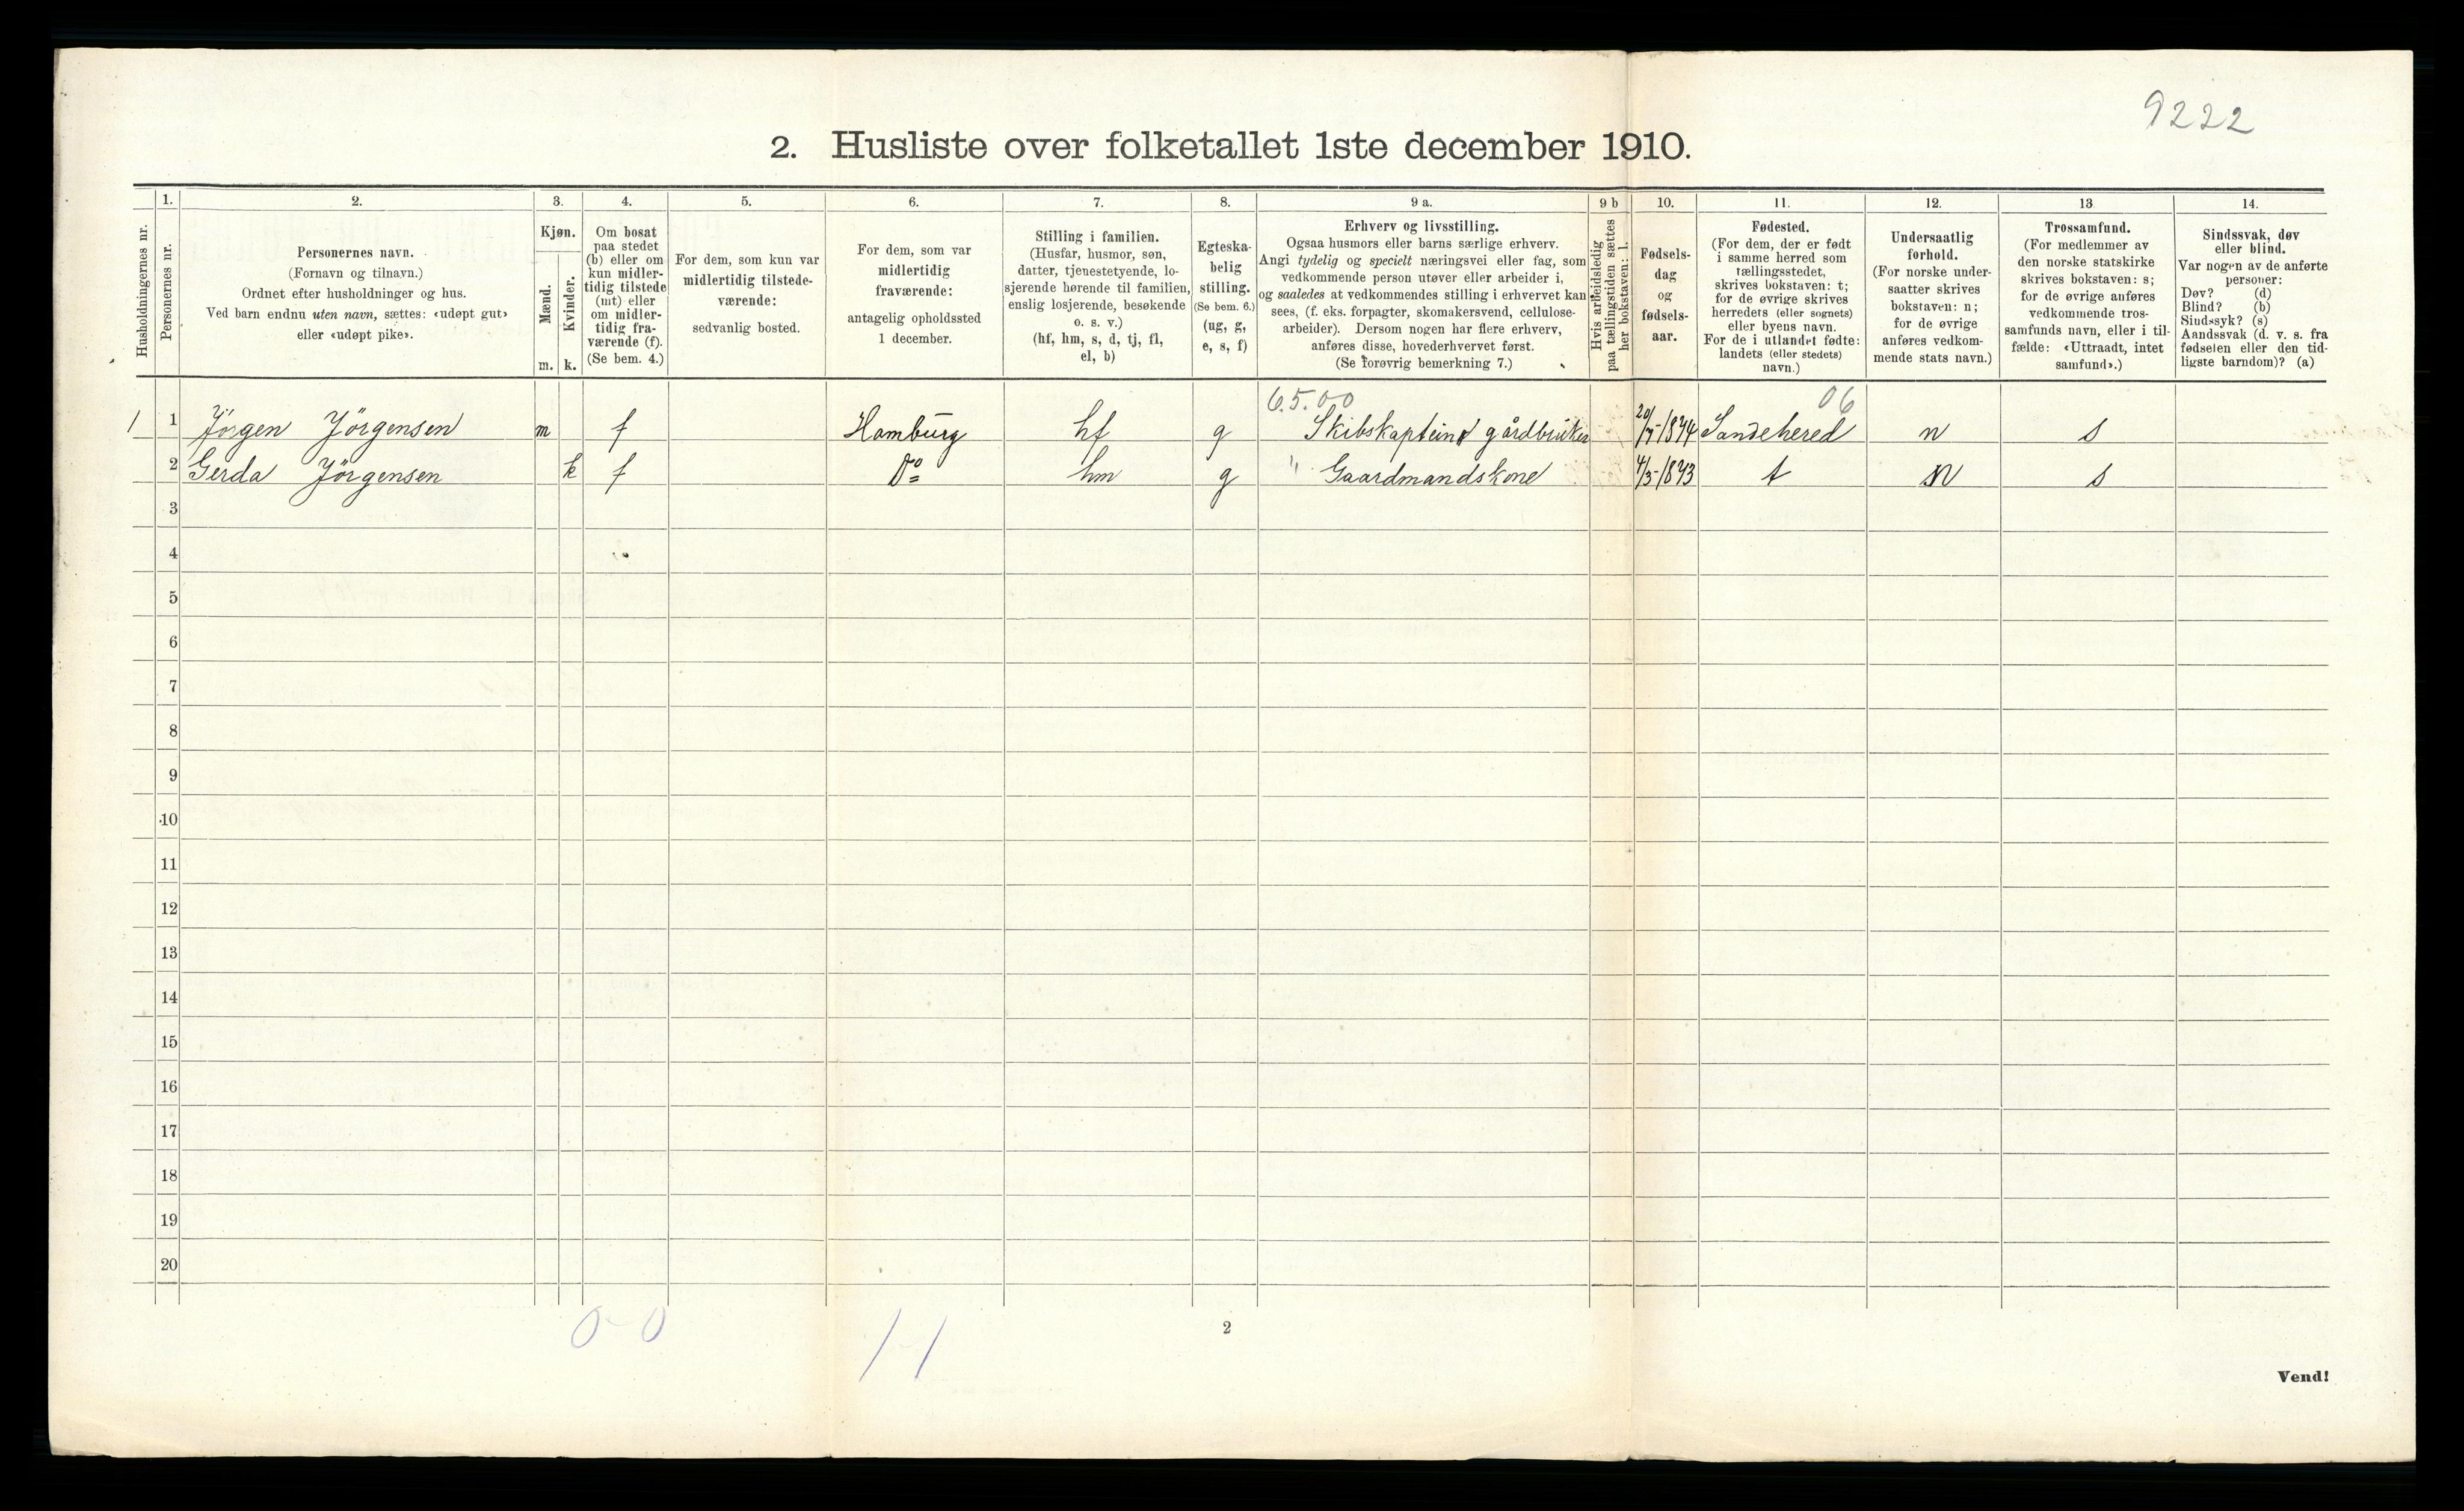 9222
2. Husliste over folketallet 1ste december 1910.
1. 2. 3. 4. 5. 6. 7. 8. 9 a. 9 b 10. 11. 12. 13 14.
Husholdningernes nr.
Personernes nr.
Personernes navn.
(Fornavn og tilnavn.)
Ordnet efter husholdninger og hus.
Ved barn endnu uten navn, sættes: «udøpt gut»
eller «udøpt pike».
Kjøn.
Mænd.
m.
Kvinder.
k.
Om bosat
paa stedet
(b) eller om
kun midler-
tidig tilstede
(mt) eller
om midler-
tidig fra-
værende (f).
(Se bem. 4.)
For dem, som kun var
midlertidig tilstede-
værende:
sedvanlig bosted.
For dem, som var
midlertidig
fraværende:
antagelig opholdssted
1 december.
Stilling i familien.
(Husfar, husmor, søn,
datter, tjenestetyende, lo-
sjerende hørende til familien,
enslig losjerende, besøkende
o. s. v.)
(hf, hm, s, d, tj, fl,
el, b)
Egteska-
belig
stilling.
(Se bem. 6.)
(ug, g,
e, s, f)
Erhverv og livsstilling.
Ogsaa husmors eller barns særlige erhverv.
Angi tydelig og specielt næringsvei eller fag, som
vedkommende person utøver eller arbeider i,
og saaledes at vedkommendes stilling i erhvervet kan
sees, (f. eks. forpagter, skomakersvend, cellulose-
arbeider). Dersom nogen har flere erhverv,
anføres disse, hovederhvervet først.
(Se forøvrig bemerkning 7.)
Hvis arbeidsledig
paa tællingstiden sættes
her bokstaven: l.
Fødsels-
dag
og
fødsels-
aar.
Fødested.
(For dem, der er født
i samme herred som
tællingsstedet,
skrives bokstaven: t;
for de øvrige skrives
herredets (eller sognets)
eller byens navn.
For de i utlandet fødte:
landets (eller stedets)
navn.)
Undersaatlig
forhold.
(For norske under-
saatter skrives
bokstaven: n;
for de øvrige
anføres vedkom-
mende stats navn.)
Trossamfund.
(For medlemmer av
den norske statskirke
skrives bokstaven: s;
for de øvrige anføres
vedkommende tros-
samfunds navn, eller i til-
fælde: «Uttraadt, intet
samfund».)
Sindssvak, døv
eller blind.
Var nogen av de anførte
personer:
Døv? (d)
Blind? (b)
Sindssyk? (s)
Aandssvak (d. v. s. fra
fødselen eller den tid-
ligste barndom)? (a)
6.5.00 06
1 1 Jörgen Jörgensen m f Hamburg hf g Skibskaptein gårdbruker 1874 Sandehered n s
2 Gerda Jörgensen k f Do hm g " Gaardmandskone 4/3-1873 t N s
3
4
5
6
7
8
9
10
11
12
13
14
15
16
17
18
19
20
0-0 1-1
2
Vend!